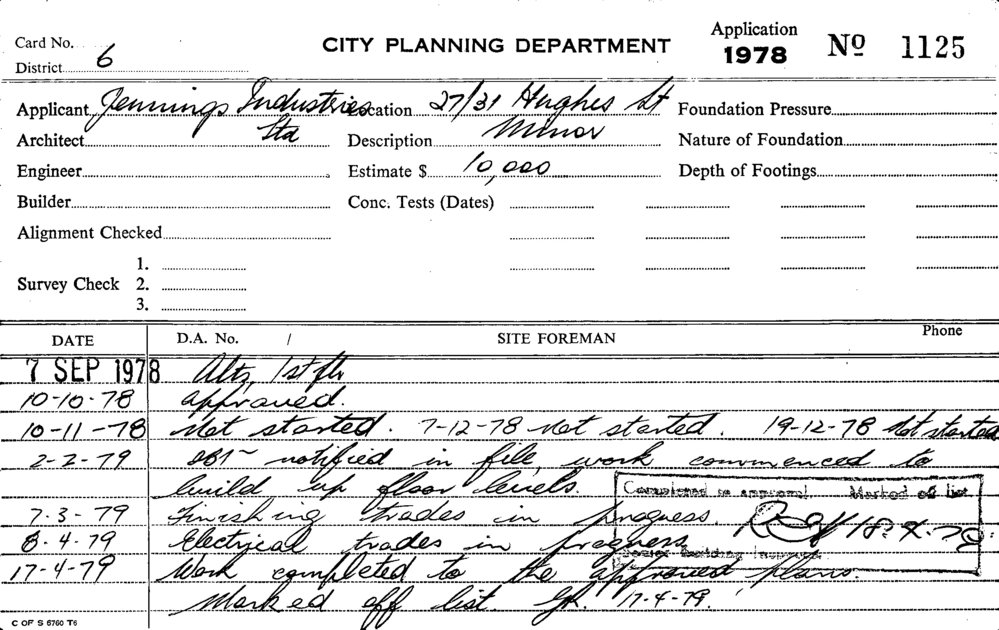 Card No.
District 6
CITY PLANNING DEPARTMENT
Application
1978
No 1125
Applicant Jennings Industries Ltd
Location 27/31 Hughes St
Foundation Pressure
Architect
Description Minor
Nature of Foundation
Engineer
Estimate $ 10,000
Depth of Footings
Builder
Conc. Tests (Dates)
Alignment Checked
Survey Check 1.
2.
3.
DATE
D.A. No. /
SITE FOREMAN
Phone
7 SEP 1978 Alts, 1st flr
10-10-78 approved.
10-11-78 Not started. 7-12-78 Not started. 19-12-78 Not started
2-2-79 notified in file, work commenced to
build up floor levels.
7-3-79 Finishing trades in progress.
8-4-79 Electrical trades in progress
17-4-79 Work completed to the approved plans.
Marked off list. 17-4-79.
Completed as approved. Marked off list.
Senior Building Inspector
C OF S 6760 T6